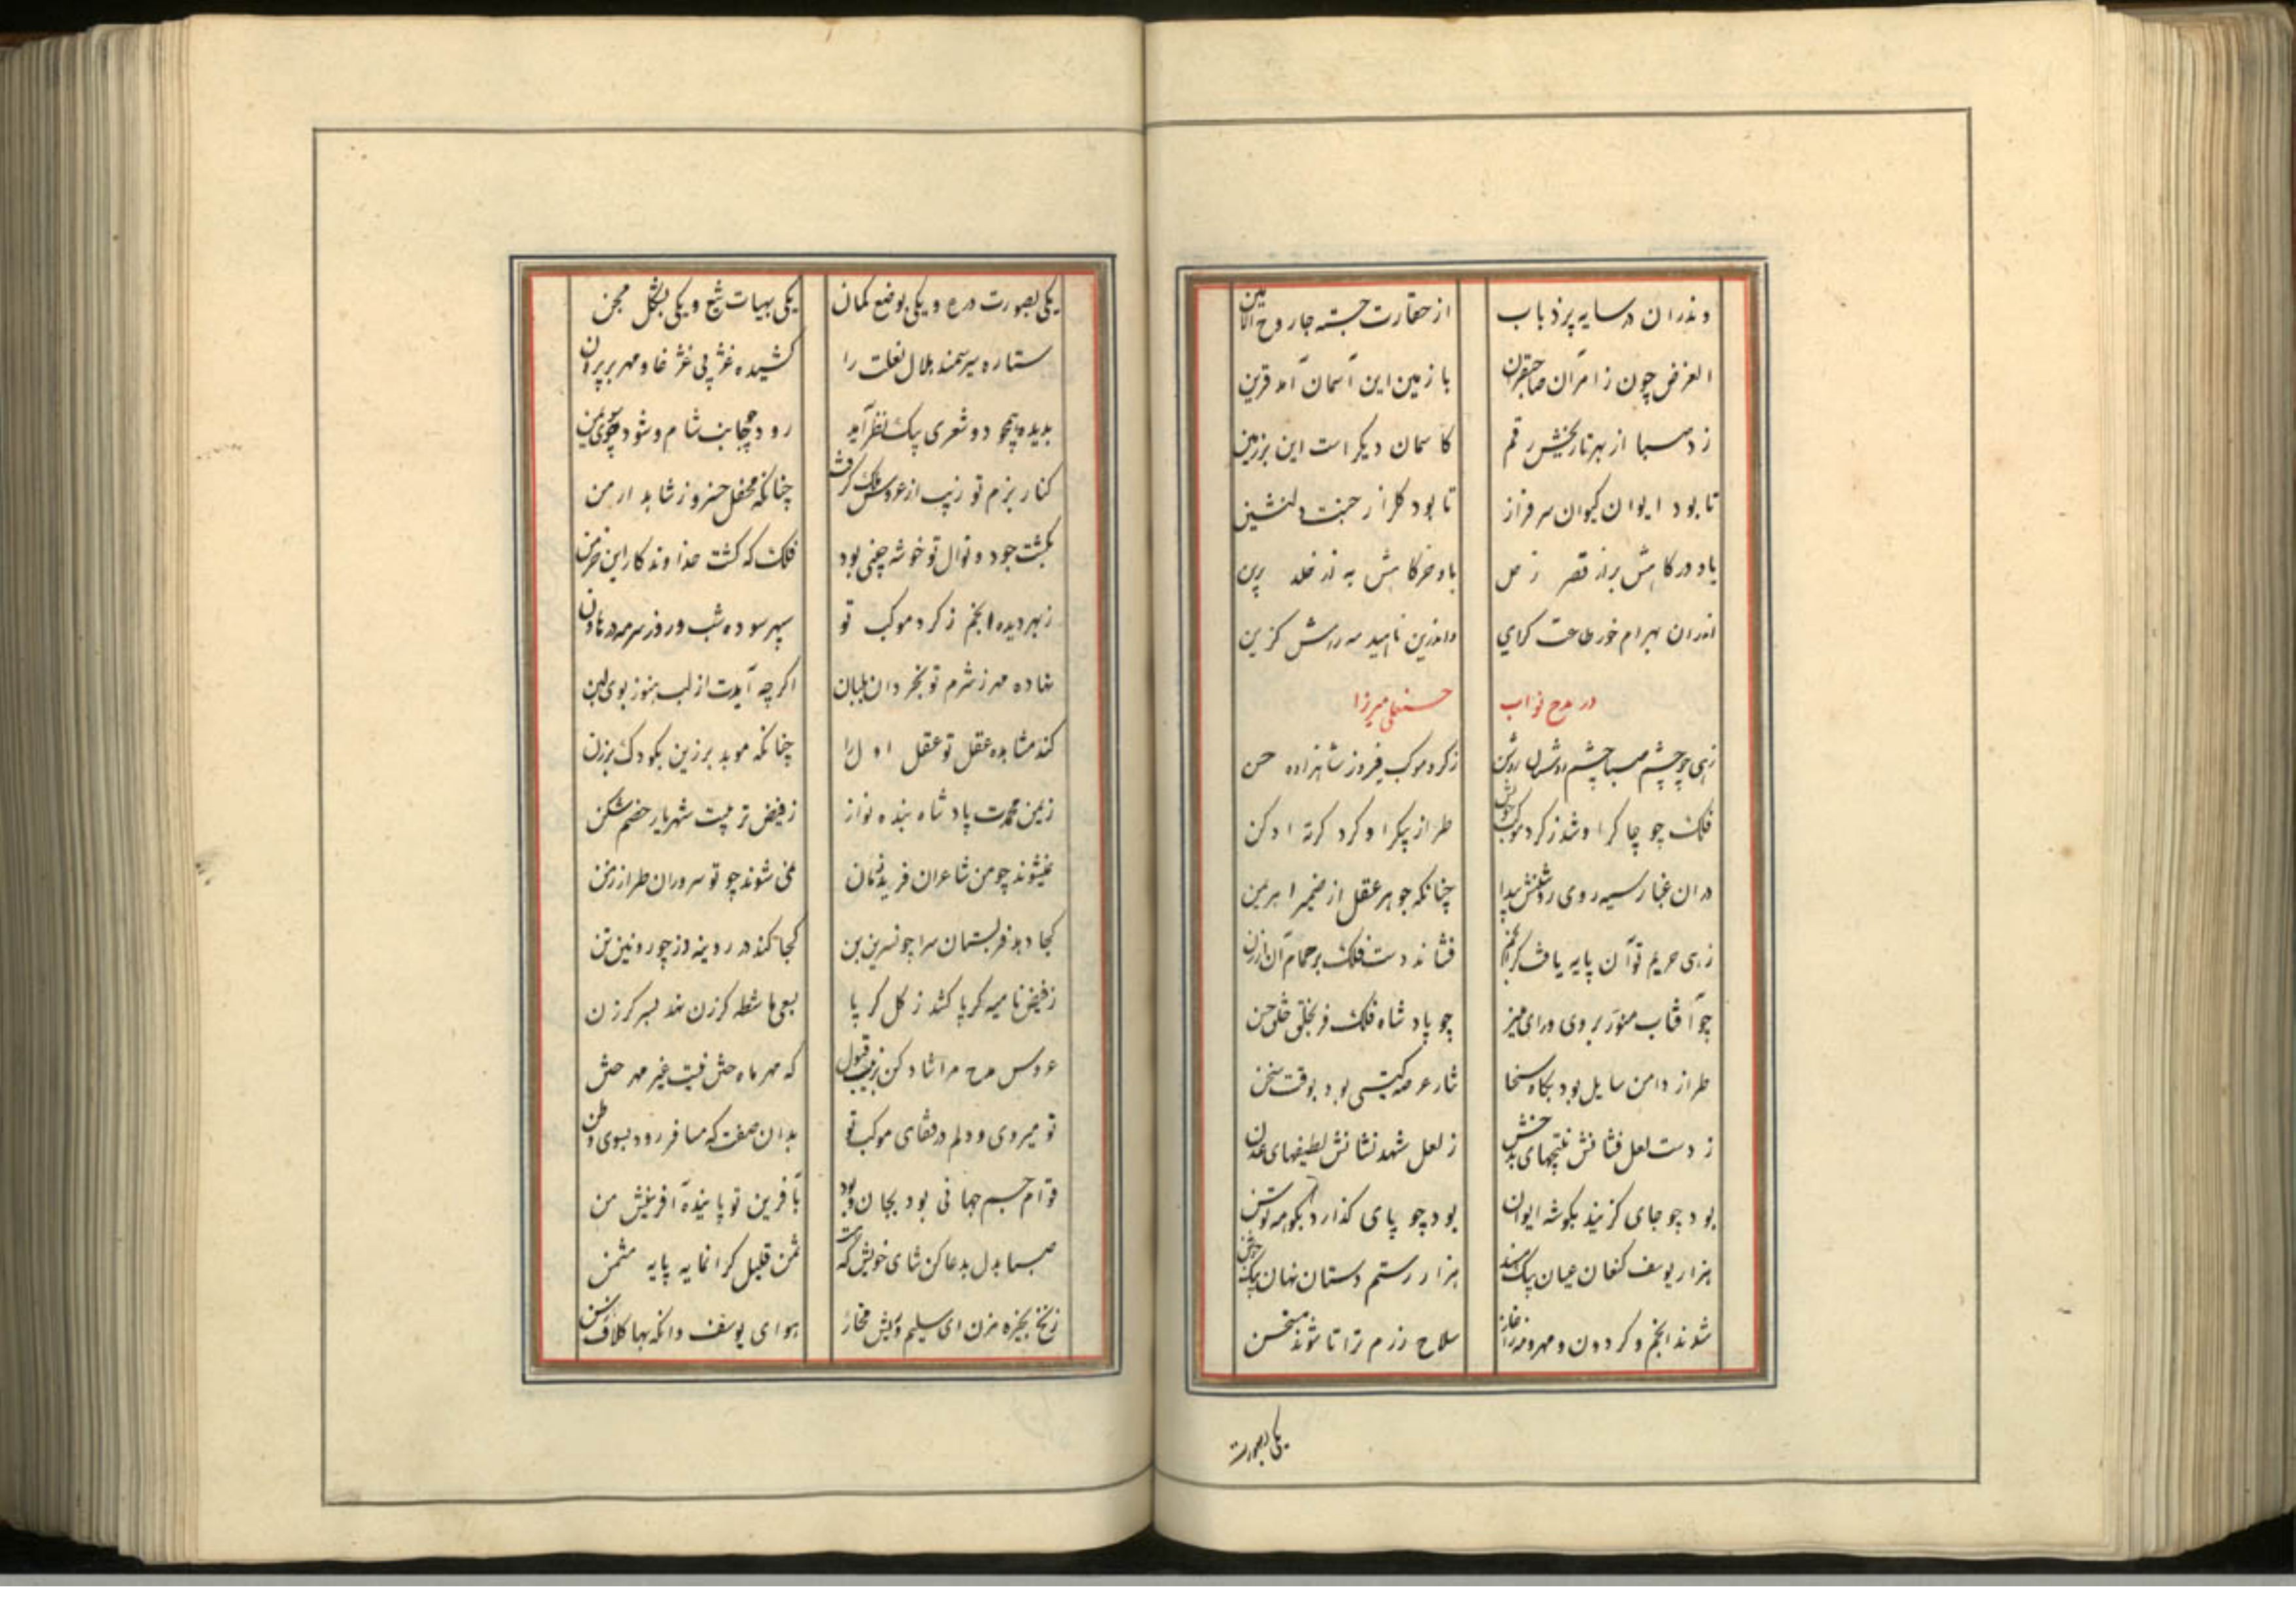 وندران در سایه پر ذباب از حقارت جسته جا روح الامین
الغرض چون ز امر آن صاحبقران با زمین این آسمان آمد قرین
زد صبا از بهر تاریخش رقم کاسمان دیکر است این بر زمین
تا بود ایوان کیوان سرفراز تا بود کلزار جنت دلنشین
باد درکاهش براز قصر زحل باد خرکاهش به از خلد برین
اندران بهرام خور طاعت کرای واندرین ناهید مه رامش کزین
در مدح نواب حسنعلی میرزا
زهی چو چشم صبا چشم روشنان روشن ز کرد موکب فیروز شاهزاده حسن
فلک چو چاکر او شد ز کرد موکب خویش طراز پیکر او کرد کرته ادکن
در ان غبار سیه روی روشنش پیدا چنانکه جوهر عقل از ضمیر اهریمن
زهی حریم تو آن پایه یافت کز انجم فشاند دست فلک بر حمام آن ارزن
چو آفتاب منور بروی و رای منیر چو پادشاه فلک فر بخلق و خلق حسن
طراز دامن سایل بود بکاه سخا نثار عرصه کیتی بود بوقت سخن
ز دست لعل فشانش نتیجهای بدخش ز لعل شهد نشانش لطیفهای عدن
بود چو جای کزیند بکوشه ایوان بود چو پای کذارد بکوهه توسن
هزار یوسف کنعان عیان بیک مسند هزار رستم دستان نهان بیک جوشن
شدند انجم و کردون و مهر و مه ز آغاز سلاح رزم ترا تا شوند مستحسن
یکی بصورت
یکی بصورت درع و یکی بوضع کمان یکی بهیات تیغ و یکی بشکل مجن
ستاره سیر سمند هلال نعلت را کشیده غژ پی غژ غا و مهر بر پرن
بدیده همچو دو شعری بیک نظر آید رود چو جانب شام و شود چو سوی یمن
کنار بزم تو زیب از عروس فلک کرفت چنانکه محفل خسرو ز شاهد ارمن
بکشت جود و نوال تو خوشه چینی بود فلک که کشت خداوند کار این خرمن
ز بهر دیده انجم ز کرد موکب تو سپهر سوده شب و روز سرمه در هاون
نهاده مهر ز شرم تو بخردان بلبان اکر چه آیدت از لب هنوز بوی لبن
کند مشاهده عقل تو عقل اول را چنانکه موبد برزین بکودک برزن
ز یمن محمدت پادشاه بنده نواز ز فیض تربیت شهریار خصم شکن
نمیشوند چو من شاعران فرید زمان نمی شوند چو تو سروران طراز زمن
کجا دهد فر بستان سرا چو نسرین بن کجا کند در رویینه دز چو روئین تن
ز فیض نامیه کر پا کشد ز کل کر پا بسعی ماشطه کرزن نهد بسر کرزن
عروس مدح مرا شاد کن ز زیب قبول که مهر ماه حسش نیست غیر مهر حسن
تو میروی و دلم در قفای موکب تو بدان صفت که مسافر رود بسوی وطن
قوام جسم جهانی بود بجان وجود بآفرین تو پاینده آفرینش من
صبا بدل بدعا کن ثنای خویش که هست ثمن قلیل کرانمایه پایه مثمن
زنخ بخیره مزن ای سلیم و بیش مخار هوای یوسف وانکه بها کلاف رسن